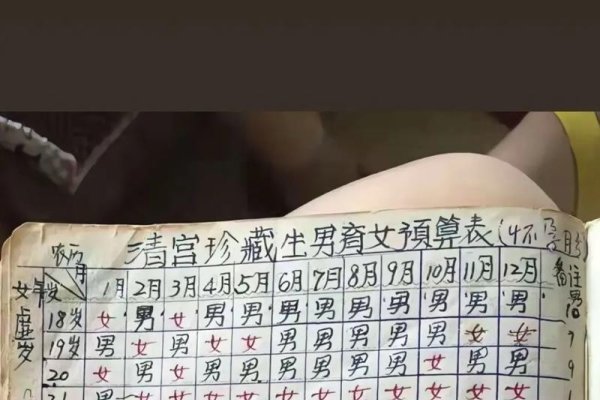 清宫珍藏生男育女预算表(怀孕月
农历月
女年岁 1月 2月 3月 4月 5月 6月 7月 8月 9月 10月 11月 12月 备注
虚岁
18岁 女 男 女 男 男 男 男 男 男 男 男 男 男
19岁 男 女 男 女 女 男 男 男 男 男 女 女 7
20 女 男 女 男 男 男 男 男 男 女 男 男 9
21 男 女 女 女 女 女 女 女 女 女 女 女